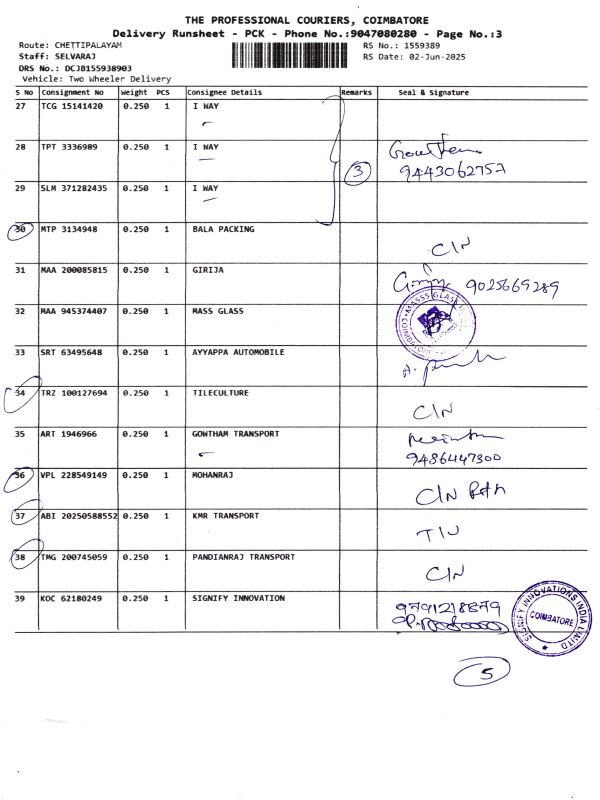 THE PROFESSIONAL COURIERS, COIMBATORE
Delivery Runsheet - PCK - Phone No.:9047080280 - Page No.:3
Route: CHETTIPALAYAM
Staff: SELVARAJ
DRS No.: DCJB155938903
Vehicle: Two Wheeler Delivery
RS No.: 1559389
RS Date: 02-Jun-2025
S No Consignment No Weight PCS Consignee Details Remarks Seal & Signature
27 TCG 15141420 0.250 1 I WAY
28 TPT 3336989 0.250 1 I WAY
3
9443062757
29 SLM 371282435 0.250 1 I WAY
30 MTP 3134948 0.250 1 BALA PACKING
C/N
31 MAA 200085815 0.250 1 GIRIJA
9025669289
32 MAA 945374407 0.250 1 MASS GLASS
33 SRT 63495648 0.250 1 AYYAPPA AUTOMOBILE
34 TRZ 100127694 0.250 1 TILECULTURE
C/N
35 ART 1946966 0.250 1 GOWTHAM TRANSPORT
9486447300
36 VPL 228549149 0.250 1 MOHANRAJ
C/N
37 ABI 20250588552 0.250 1 KMR TRANSPORT
38 TMG 200745059 0.250 1 PANDIANRAJ TRANSPORT
C/N
39 KOC 62180249 0.250 1 SIGNIFY INNOVATION
9791218879
SIGNIFY INNOVATIONS INDIA LIMITED
COIMBATORE
5